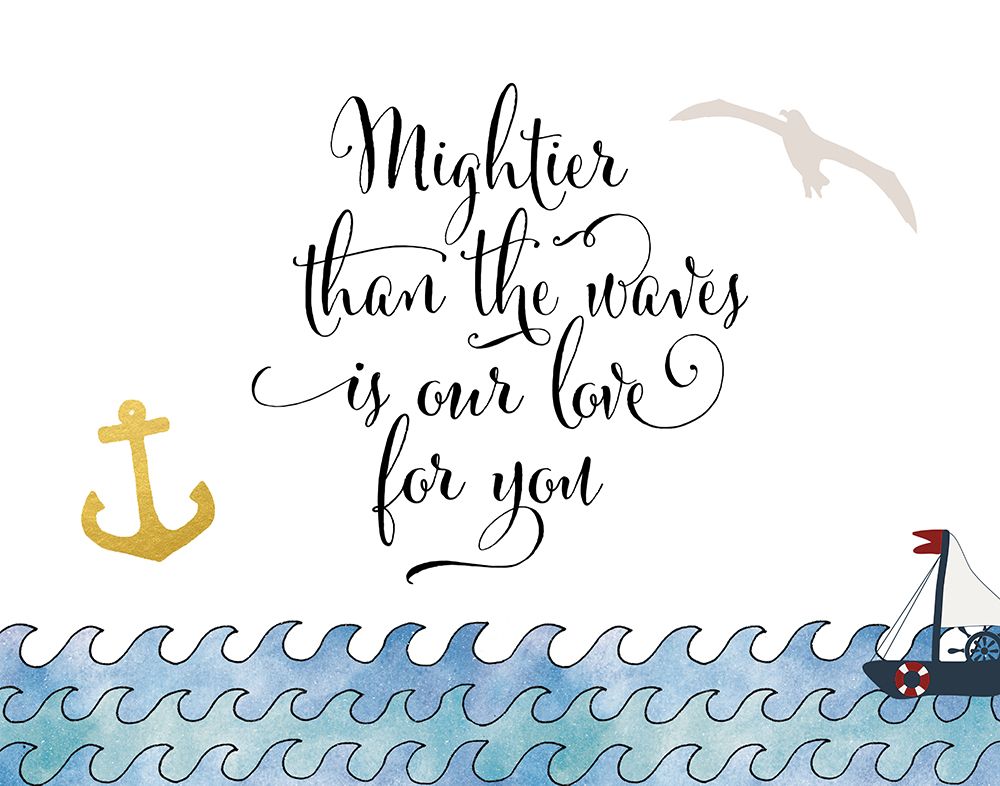 Mightier
than the waves
is our love
for you